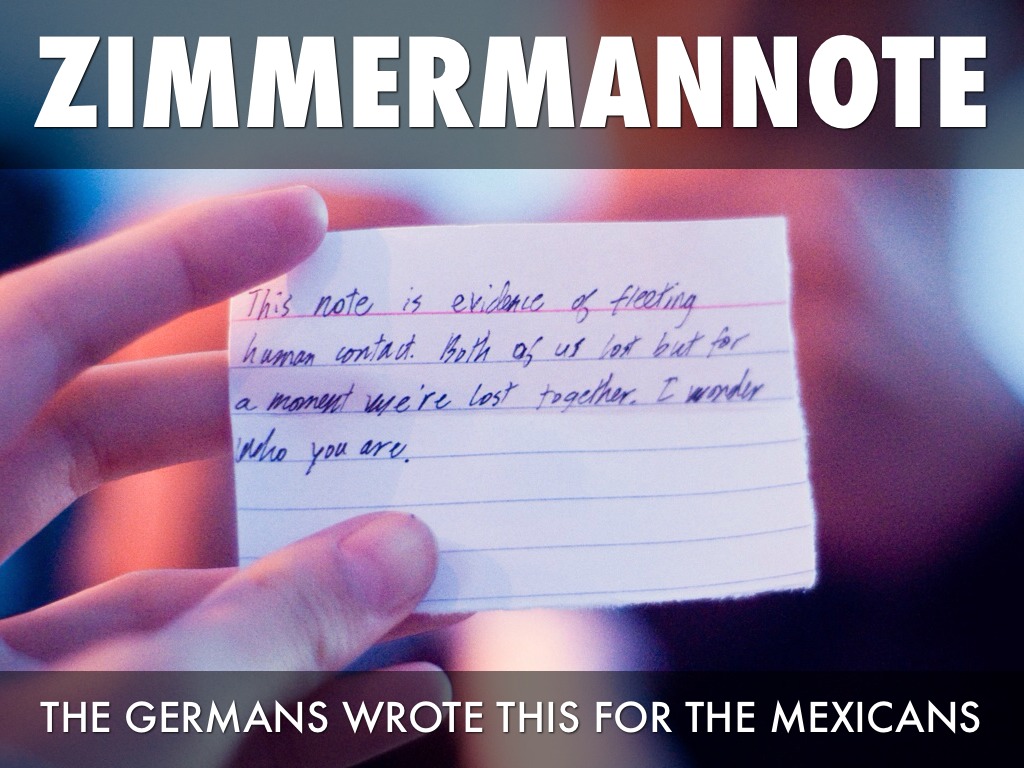 ZIMMERMANNOTE
This note is evidence of fleeting
human contact. Both of us lost but for
a moment we're lost together. I wonder
who you are.
THE GERMANS WROTE THIS FOR THE MEXICANS